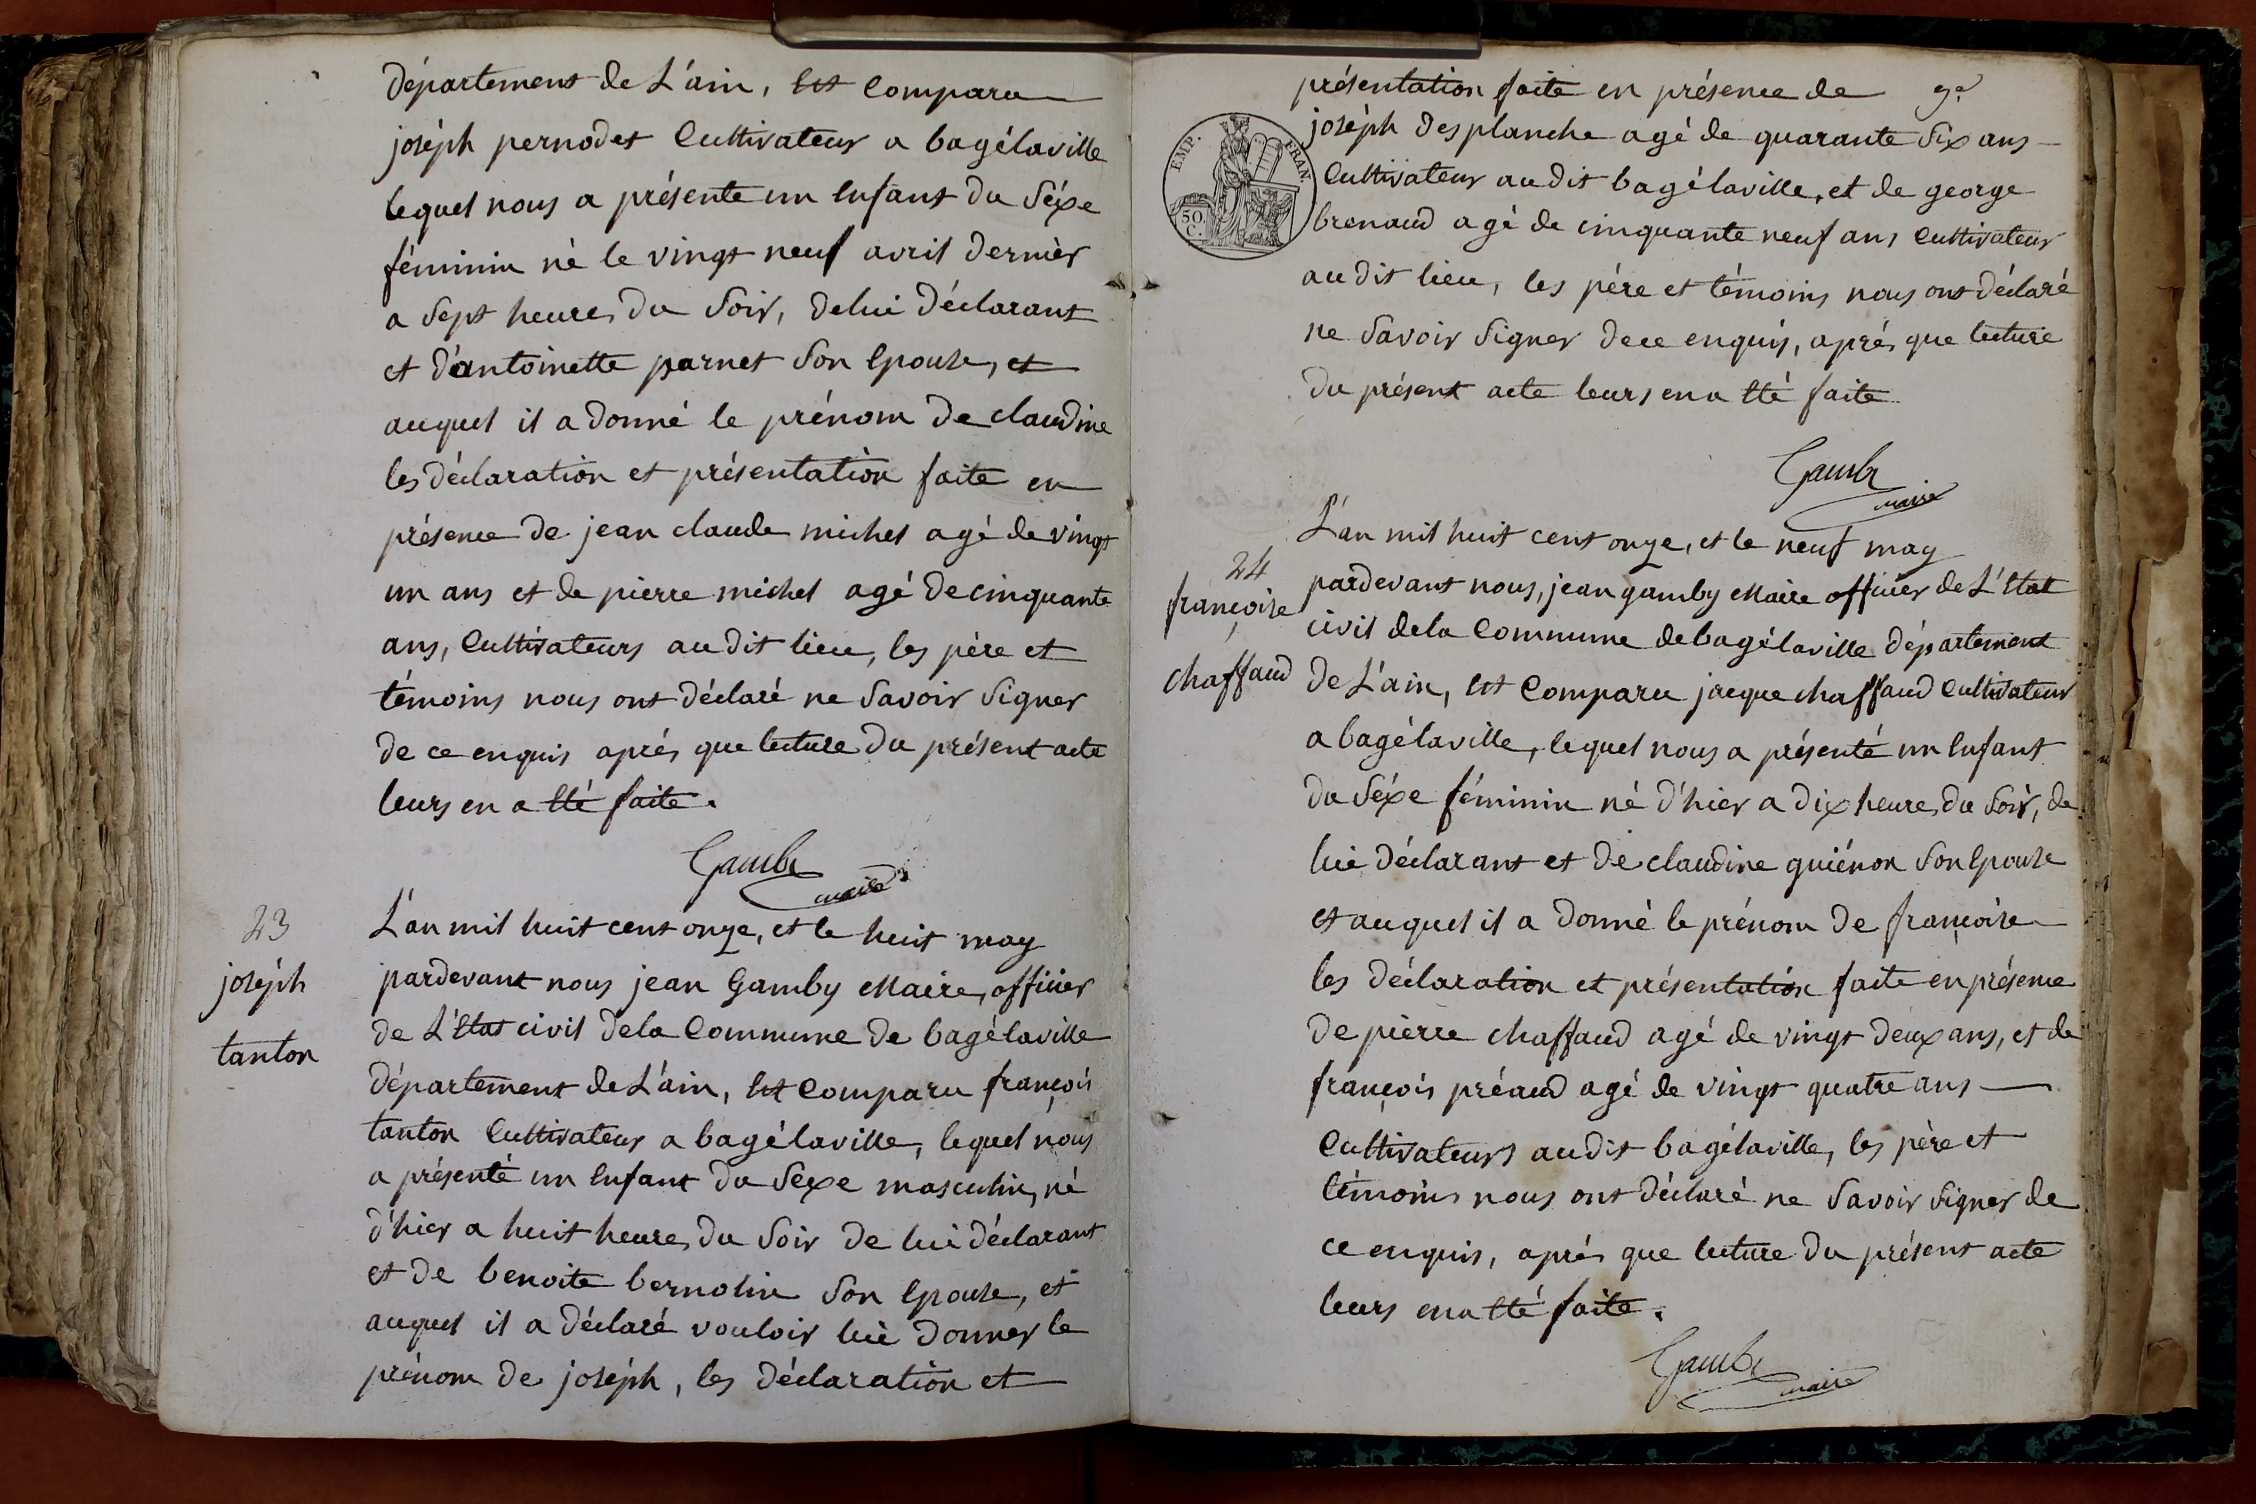 département de L'ain, Est Comparu
joséph pernodet Cultivateur a bagélaville
lequel nous a présente un Enfant du Séxe
féminin né le vingt neuf avril dernièr
a Sept heures du Soir, delui déclarant
et d'antoinette parnet Son Epouse, et
auquel il a donné le prénom de claudine
les déclaration et présentation faite en
présence de jean claude michel agé de vingt
un ans et de pierre michel agé de cinquante
ans, Cultivateurs au dit lieu, les père et
témoins nous ont déclaré ne Savoir Signer
de ce enquis aprés que lecture du présent acte
leurs en a Eté faite.
Gamby
maire
23
joséph
tanton
L'an mil huit cent onze, et le huit may
pardevant nous jean Gamby Maire, officier
de L'Etat civil dela Commune de bagélaville
département de L'ain, Est Comparu françois
tanton Cultivateur a bagélaville, lequel nous
a présenté un Enfant du Sexe masculin, né
d'hier a huit heures du Soir de lui déclarant
et de benoite bernolin Son Epouse, et
auquel il a déclaré vouloir lui donner le
prénom de joséph, les déclaration et
présentation faite en présence de
joséph desplanche agé de quarante Six ans
Cultivateur au dit bagélaville, et de george
brenaud agé de cinquante neuf ans Cultivateur
au dit lieu, les pére et témoins nous ont déclaré
ne Savoir Signer de ce enquis, aprés que lecture
du présent acte leurs en a Eté faite
EMP. FRAN.
50
C.
Gamby
maire
24
françoise
chaffaud
L'an mil huit cent onze, et le neuf may
pardevant nous, jean gamby Maire officier de L'Etat
civil dela Commune de bagélaville département
de L'ain, Est Comparu jacque chaffaud Cultivateur
a bagélaville, lequel nous a présenté un Enfant
du Séxe féminin né d'hier a dix heures du Soir, de
lui déclarant et de claudine guiénon Son Epouse
et auquel il a donné le prénom de françoise
les déclaration et présentation faite en présence
de pierre chaffaud agé de vingt deux ans, et de
françois préaud agé de vingt quatre ans
Cultivateurs au dit bagélaville, les père et
témoins nous ont déclaré ne Savoir Signer de
ce enquis, aprés que lecture du présent acte
leurs en a Eté faite.
Gamby
maire